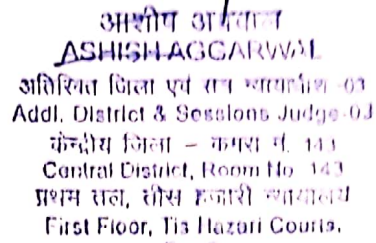 आशीष अग्रवाल
ASHISH AGGARWAL
अतिरिक्त जिला एवं सत्र न्यायाधीश -03
Addl. District & Sessions Judge-03
केन्द्रीय जिला – कमरा नं. 143
Central District, Room No. 143
प्रथम तल, तीस हजारी न्यायालय
First Floor, Tis Hazari Courts,